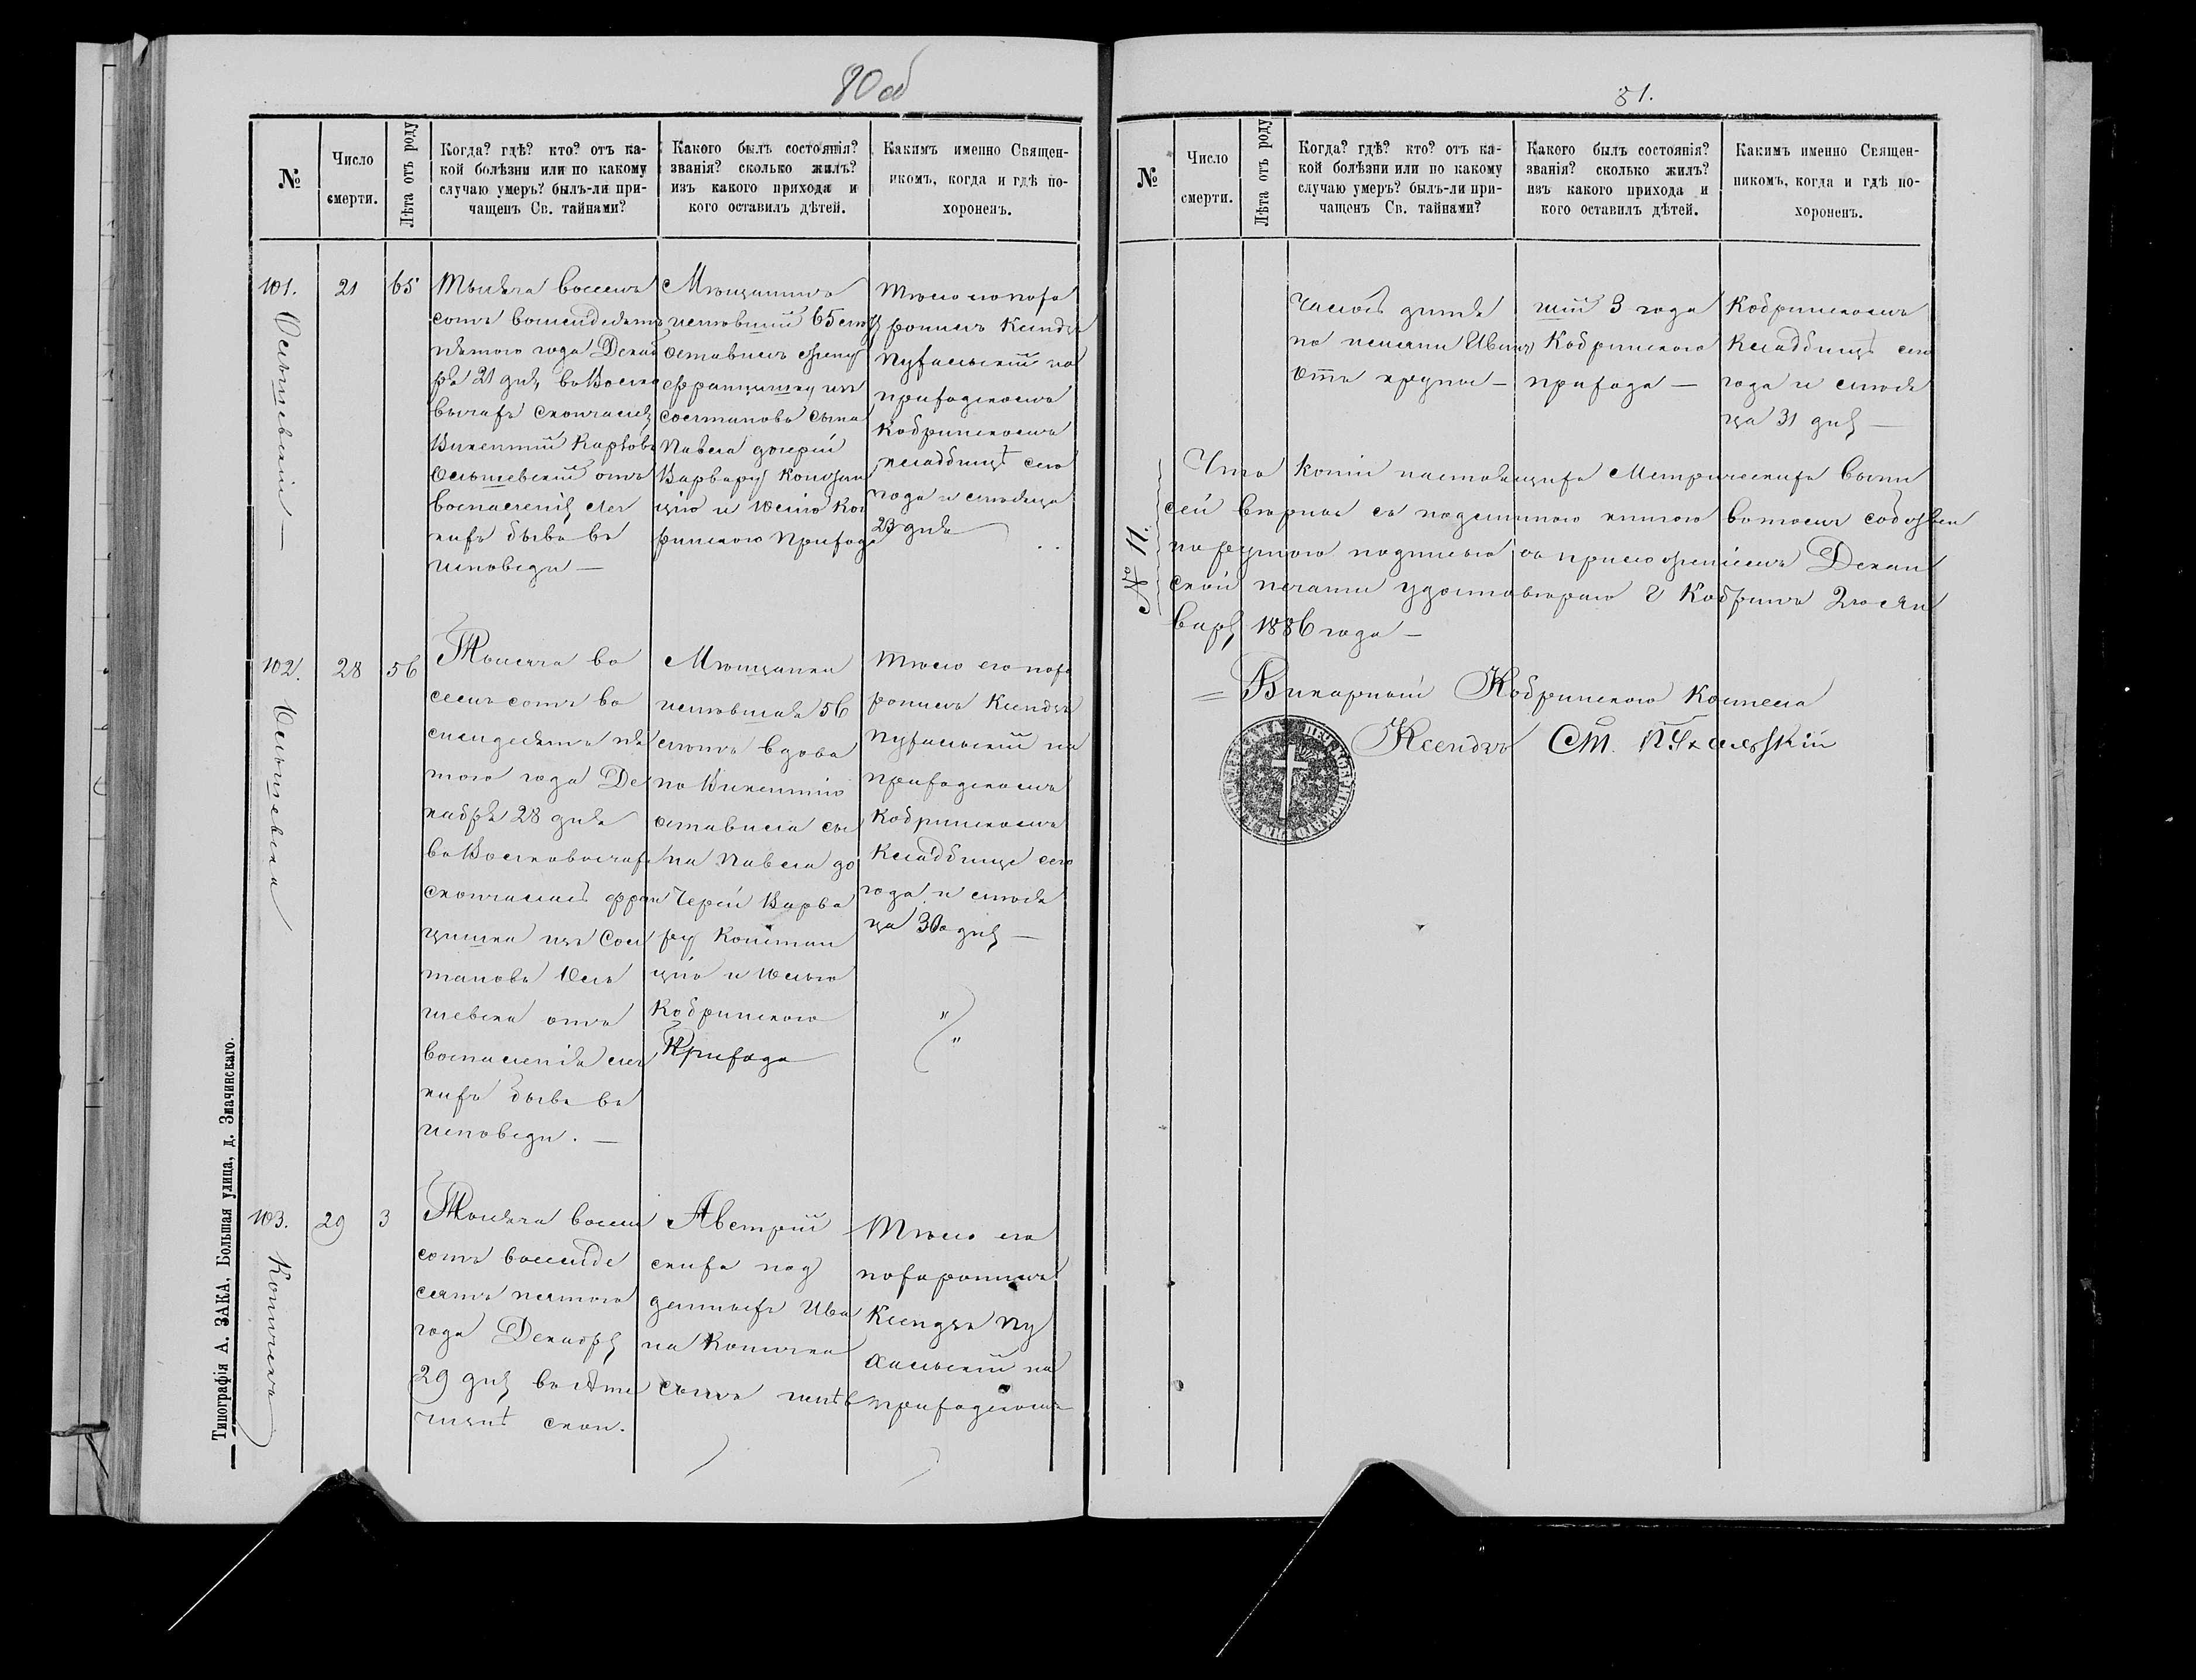 80 об
№
Число
смерти.
Лѣта отъ роду
Когда? гдѣ? кто? отъ ка-
кой болѣзни или по какому
случаю умеръ? былъ-ли при-
чащенъ Св. тайнами?
Какого былъ состоянія?
званія? сколько жилъ?
изъ какого прихода и
кого оставилъ дѣтей.
Какимъ именно Священ-
никомъ, когда и гдѣ по-
хороненъ.
101.
Ольшевскій
21
65
Тысяча восемь
сотъ восемьдесятъ
пятого года Декаб
ря 21 дня въ
скончался
Викентій Карловъ
Ольшевскій отъ
воспаленія лег
кихъ бывъ въ
исповеди —
Мѣщанинъ
имѣвшій 65 лѣтъ
оставилъ жену
Францишку изъ
сына
Павла дочерей
Варвару Констан
цію и Юлію Коб
ринского Прихода
Тѣло его похо
ронилъ Ксендзъ
Пухальскій на
приходскомъ
Кобринскомъ
кладбищѣ сего
года и мѣсяца
23 дня
102.
Ольшевска
28
56
Тысяча во
семь сотъ во
семдесятъ пя
того года Де
кабря 28 дня
скончалась Фран
цишка изъ
Оль
шевска отъ
воспаленія лег
кихъ бывъ въ
исповеди. —
Мѣщанка
имѣвшая 56
лѣтъ вдова
по Викентію
оставила сы
на Павла до
черей Варва
ру Констан
цію и Юлью
Кобринского
Прихода
Тѣло его похо
ронилъ Ксендзъ
Пухальскій на
приходскомъ
Кобринскомъ
Кладбище сего
года и мѣся
ца 30 дня —
" "
103.
29
3
Тысяча восем
сотъ восемде
сятъ пятого
года Декабря
29 дня въ
скон.
Австрій
скихъ под
данныхъ Ива
на
сынъ имѣв
Тѣло его
похоронилъ
Ксендзъ Пу
хальскій на
приходскомъ
Типографія А. ЗАКА, Большая улица, д. Значинскаго.
81.
№
Число
смерти.
Лѣта отъ роду
Когда? гдѣ? кто? отъ ка-
кой болѣзни или по какому
случаю умеръ? былъ-ли при-
чащенъ Св. тайнами?
Какого былъ состоянія?
званія? сколько жилъ?
изъ какого прихода и
кого оставилъ дѣтей.
Какимъ именно Священ-
никомъ, когда и гдѣ по-
хороненъ.
чалось дитя
по имени Иванъ
отъ крупа —
шій 3 года
Кобринского
прихода —
Кобринскомъ
Кладбищѣ сего
года и мѣся
ца 31 дня —
№ 11.
Что копія настоящихъ Метрическихъ выпи
сей вѣрна съ подлинною книгою въ томъ собствен
норучною подписью съ приложеніемъ Декан
ской печати удостовѣряю г Кобринъ 2го Ян
варя 1886 года —
= Викарный Кобринского Костела
Ксендзъ Ст. Пухальскій